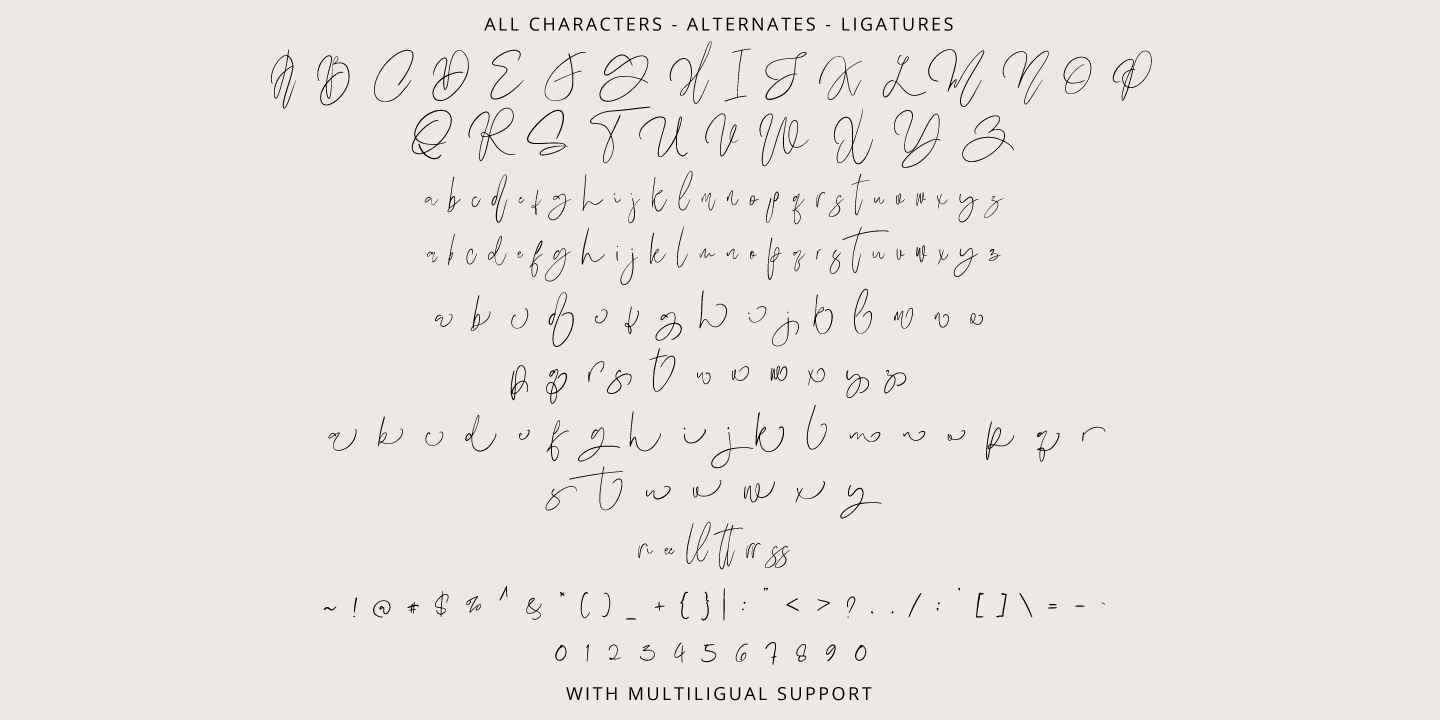 ALL CHARACTERS - ALTERNATES - LIGATURES
A B C D E F G H I J K L M N O P
Q R S T U V W X Y Z
a b c d e f g h i j k l m n o p q r s t u v w x y z
a b c d e f g h i j k l m n o p q r s t u v w x y z
a b c d e f g h i j k l m n o
p q r s t u v w x y z
a b c d e f g h i j k l m n o p q r
s t u v w x y
ee ll tt rr ss
~ ! @ # $ % ^ & * ( ) _ + { } | : " < > ? . . / ; ' [ ] \ = - `
0 1 2 3 4 5 6 7 8 9 0
WITH MULTILIGUAL SUPPORT